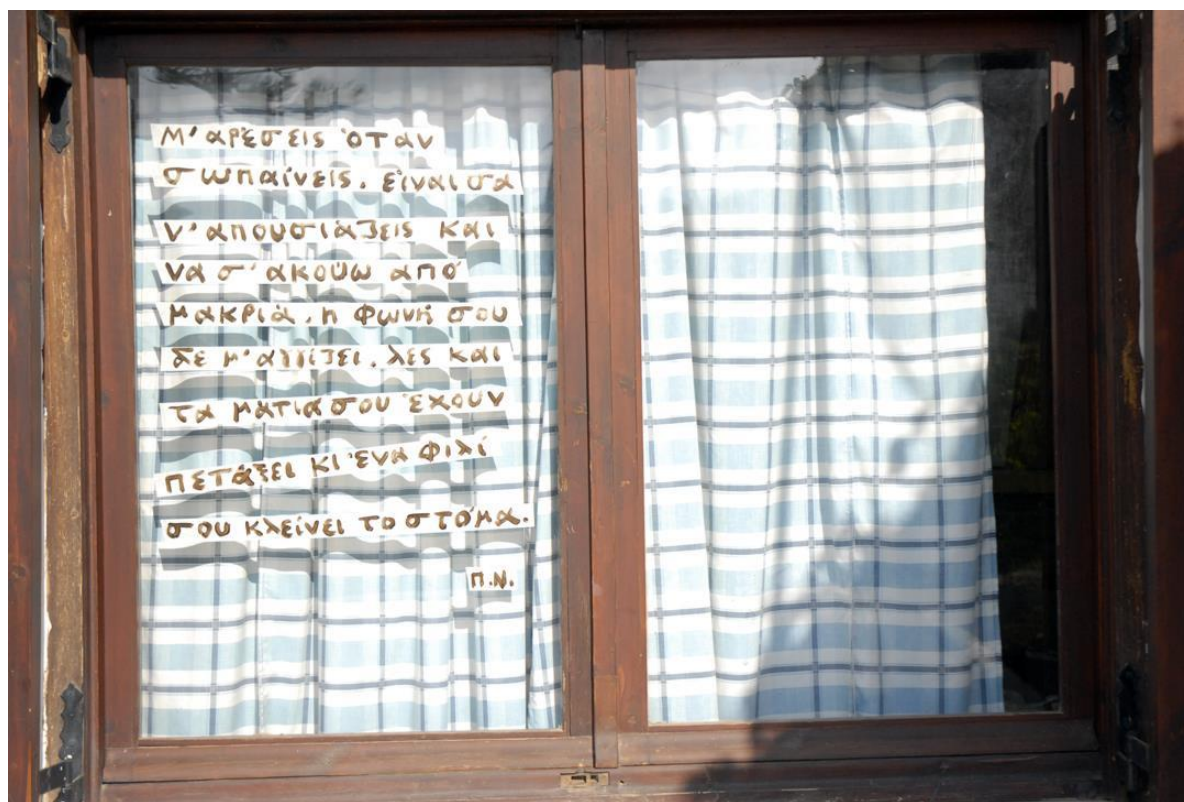 Μ'αρέσεις όταν
σωπαίνεις. είναι σα
ν'απουσιάζεις και
να σ'ακούω από
μακριά. η φωνή σου
δε μ'αγγίζει. λες και
τα μάτια σου έχουν
πετάξει κι ένα φιλί
σου κλείνει το στόμα.
Π.Ν.